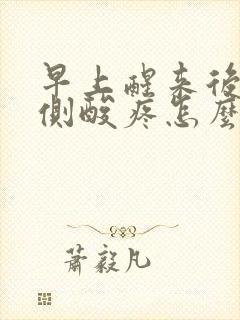 早上醒来後
側酸疼怎麼
蕭毅凡